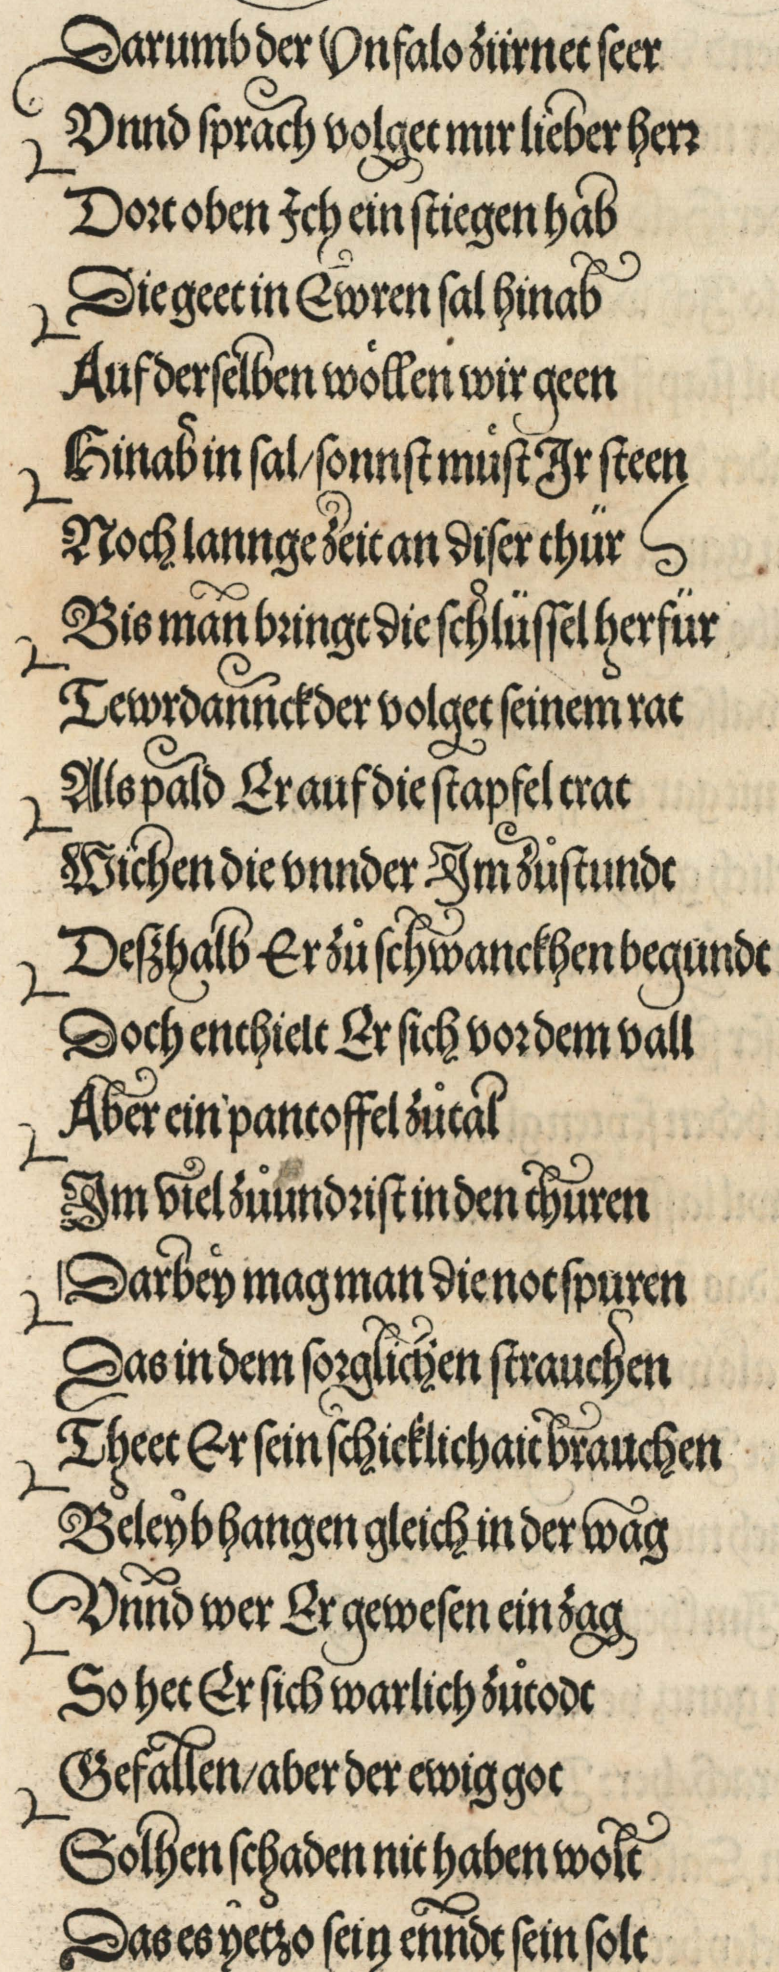 Darumb der Vnfalo zürnet seer
Vnnd sprach volget mir lieber herr
Dort oben Ich ein stiegen hab
Die geet in Ewren sal hinab
Auf derselben wöllen wir geen
Hinab in sal/sonnst müst Ir steen
Noch lannge zeit an diser thür
Bis man bringt die schlüssel herfür
Tewrdannck der volget seinem rat
Als pald Er auf die stapfel trat
Wichen die vnnder Im zůstundt
Deßhalb Er zů schwanckhen begundt
Doch enthielt Er sich vor dem vall
Aber ein pantoffel zůtal
Im viel zůundrist in den thuren
Darbey mag man die not spuren
Das in dem sorglichen strauchen
Theet Er sein schicklichait brauchen
Beleyb hangen gleich in der wag
Vnnd wer Er gewesen ein zag
So het Er sich warlich zůtodt
Gefallen/aber der ewig got
Solhen schaden nit haben wolt
Das es yetzo sein enndt sein solt